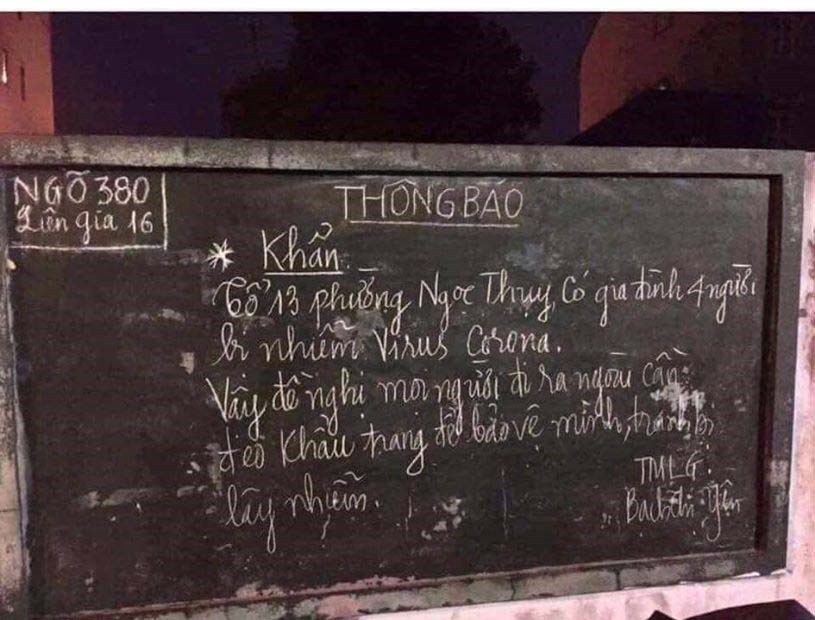 NGÕ 380
Liên gia 16
THÔNG BÁO
* Khẩn
Tổ 13 phường Ngọc Thụy, Có gia đình 4 người
bị nhiễm Virus Corona.
Vậy đề nghị mọi người đi ra ngoài cần
đeo khẩu trang để bảo vệ mình, tránh bị
lây nhiễm.
TMLG.
Yến